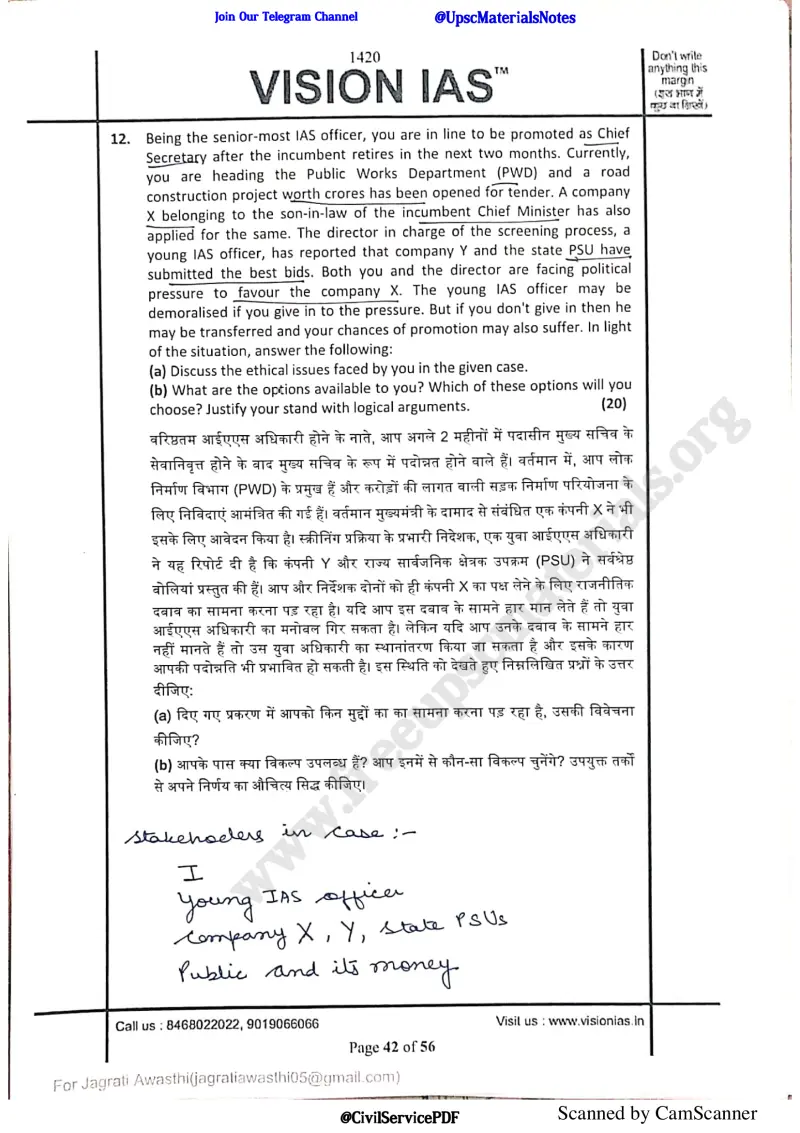 Join Our Telegram Channel @UpscMaterialsNotes
1420
VISION IAS™
Don't write
anything this
margin
(इस भाग में
कुछ ना लिखें)
12. Being the senior-most IAS officer, you are in line to be promoted as Chief
Secretary after the incumbent retires in the next two months. Currently,
you are heading the Public Works Department (PWD) and a road
construction project worth crores has been opened for tender. A company
X belonging to the son-in-law of the incumbent Chief Minister has also
applied for the same. The director in charge of the screening process, a
young IAS officer, has reported that company Y and the state PSU have
submitted the best bids. Both you and the director are facing political
pressure to favour the company X. The young IAS officer may be
demoralised if you give in to the pressure. But if you don't give in then he
may be transferred and your chances of promotion may also suffer. In light
of the situation, answer the following:
(a) Discuss the ethical issues faced by you in the given case.
(b) What are the options available to you? Which of these options will you
choose? Justify your stand with logical arguments. (20)
वरिष्ठतम आईएएस अधिकारी होने के नाते, आप अगले 2 महीनों में पदासीन मुख्य सचिव के
सेवानिवृत्त होने के बाद मुख्य सचिव के रूप में पदोन्नत होने वाले हैं। वर्तमान में, आप लोक
निर्माण विभाग (PWD) के प्रमुख हैं और करोड़ों की लागत वाली सड़क निर्माण परियोजना के
लिए निविदाएं आमंत्रित की गई हैं। वर्तमान मुख्यमंत्री के दामाद से संबंधित एक कंपनी X ने भी
इसके लिए आवेदन किया है। स्क्रीनिंग प्रक्रिया के प्रभारी निदेशक, एक युवा आईएएस अधिकारी
ने यह रिपोर्ट दी है कि कंपनी Y और राज्य सार्वजनिक क्षेत्रक उपक्रम (PSU) ने सर्वश्रेष्ठ
बोलियां प्रस्तुत की हैं। आप और निर्देशक दोनों को ही कंपनी X का पक्ष लेने के लिए राजनीतिक
दवाव का सामना करना पड़ रहा है। यदि आप इस दबाव के सामने हार मान लेते हैं तो युवा
आईएएस अधिकारी का मनोबल गिर सकता है। लेकिन यदि आप उनके दबाव के सामने हार
नहीं मानते हैं तो उस युवा अधिकारी का स्थानांतरण किया जा सकता है और इसके कारण
आपकी पदोन्नति भी प्रभावित हो सकती है। इस स्थिति को देखते हुए निम्नलिखित प्रश्नों के उत्तर
दीजिए:
(a) दिए गए प्रकरण में आपको किन मुद्दों का का सामना करना पड़ रहा है, उसकी विवेचना
कीजिए?
(b) आपके पास क्या विकल्प उपलब्ध हैं? आप इनमें से कौन-सा विकल्प चुनेंगे? उपयुक्त तर्कों
से अपने निर्णय का औचित्य सिद्ध कीजिए।
Stakeholders in case :-
I
Young IAS officer
Company X, Y, State PSUs
Public and its money
www.freeupscmaterials.org
Call us : 8468022022, 9019066066 Visit us : www.visionias.in
Page 42 of 56
For Jagrati Awasthi(jagratiawasthi05@gmail.com)
@CivilServicePDF Scanned by CamScanner